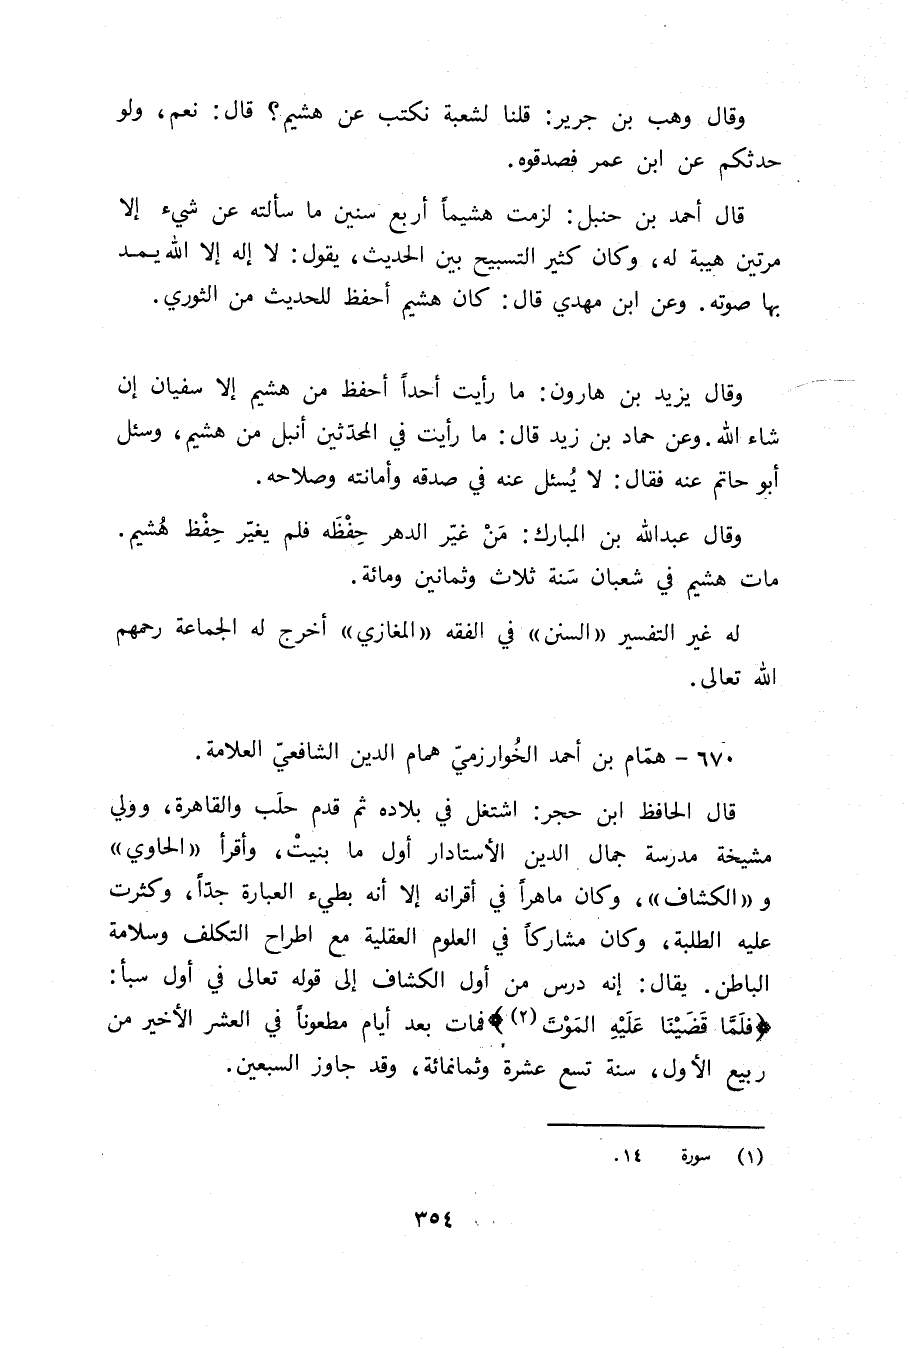 وقال وهب بن جرير: قلنا لشعبة نكتب عن هشيم؟ قال: نعم، ولو
حدثكم عن ابن عمر فصدقوه.
قال أحمد بن حنبل: لزمت هشيماً أربع سنين ما سألته عن شيء إلا
مرتين هيبة له، وكان كثير التسبيح بين الحديث، يقول: لا إله إلا الله يمد
بها صوته. وعن ابن مهدي قال: كان هشيم أحفظ للحديث من الثوري.
وقال يزيد بن هارون: ما رأيت أحداً أحفظ من هشيم إلا سفيان إن
شاء الله. وعن حماد بن زيد قال: ما رأيت في المحدّثين أنبل من هشيم، وسئل
أبو حاتم عنه فقال: لا يُسئل عنه في صدقه وأمانته وصلاحه.
وقال عبدالله بن المبارك: مَنْ غيّر الدهر حِفْظَه فلم يغيّر حِفْظ هُشيم.
مات هشيم في شعبان سَنة ثلاث وثمانين ومائة.
له غير التفسير «السنن» في الفقه «المغازي» أخرج له الجماعة رحمهم
الله تعالى.
٦٧٠ - همّام بن أحمد الخُوارزميّ همام الدين الشافعيّ العلامة.
قال الحافظ ابن حجر: اشتغل في بلاده ثم قدم حلَب والقاهرة، وولي
مشيخة مدرسة جمال الدين الأستادار أول ما بنيتْ، وأقرأ «الحاوي»
و «الكشاف»، وكان ماهراً في أقرانه إلا أنه بطيء العبارة جدّاً، وكثرت
عليه الطلبة، وكان مشاركاً في العلوم العقلية مع اطراح التكلف وسلامة
الباطن. يقال: إنه درس من أول الكشاف إلى قوله تعالى في أول سبأ:
﴿فلَمَّا قَضَيْنَا عَلَيْهِ المَوْتَ (٢)﴾ فمات بعد أيام مطعوناً في العشر الأخير من
ربيع الأول، سنة تسع عشرة وثمانمائة، وقد جاوز السبعين.
(١) سورة ١٤.
٣٥٤